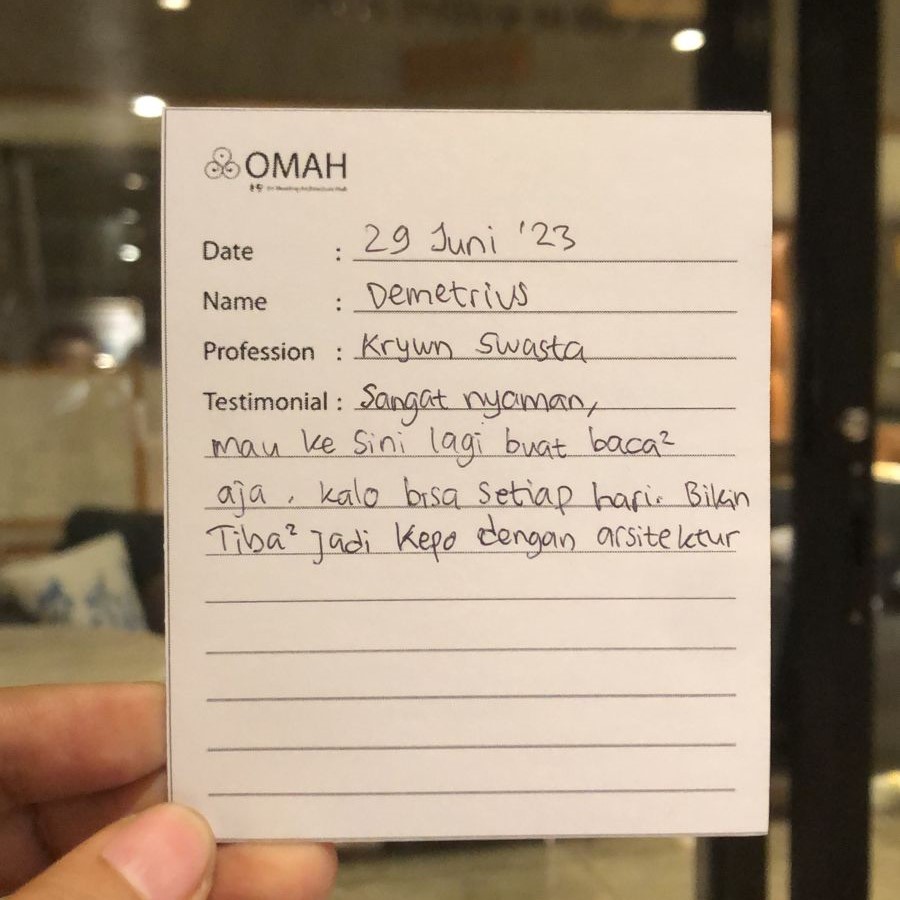 OMAH
Date : 29 Juni '23
Name : Demetrius
Profession : Krywn Swasta
Testimonial : Sangat nyaman,
mau ke sini lagi buat baca²
aja, kalo bisa setiap hari. Bikin
Tiba² jadi kepo dengan arsitektur